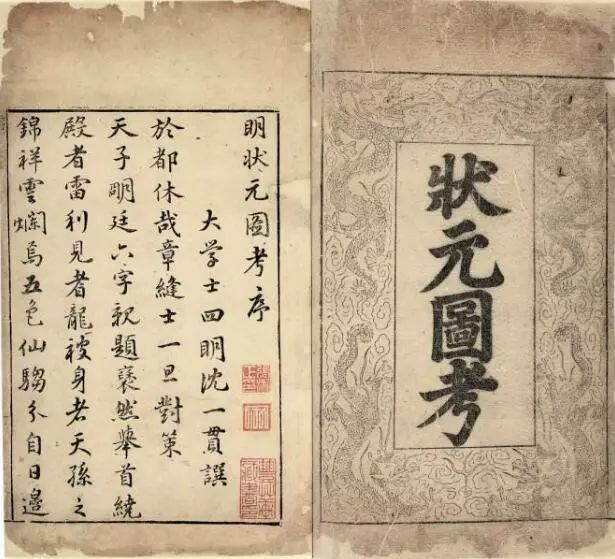 狀元圖考
明狀元圖考序
大学士四明沈一貫譔
於都休哉章縫士一旦對策
天子明廷六字親題裦然舉首繞
殿者雷利見者龍被身者天孫之
錦祥雲爛焉五色仙騶分自日邊